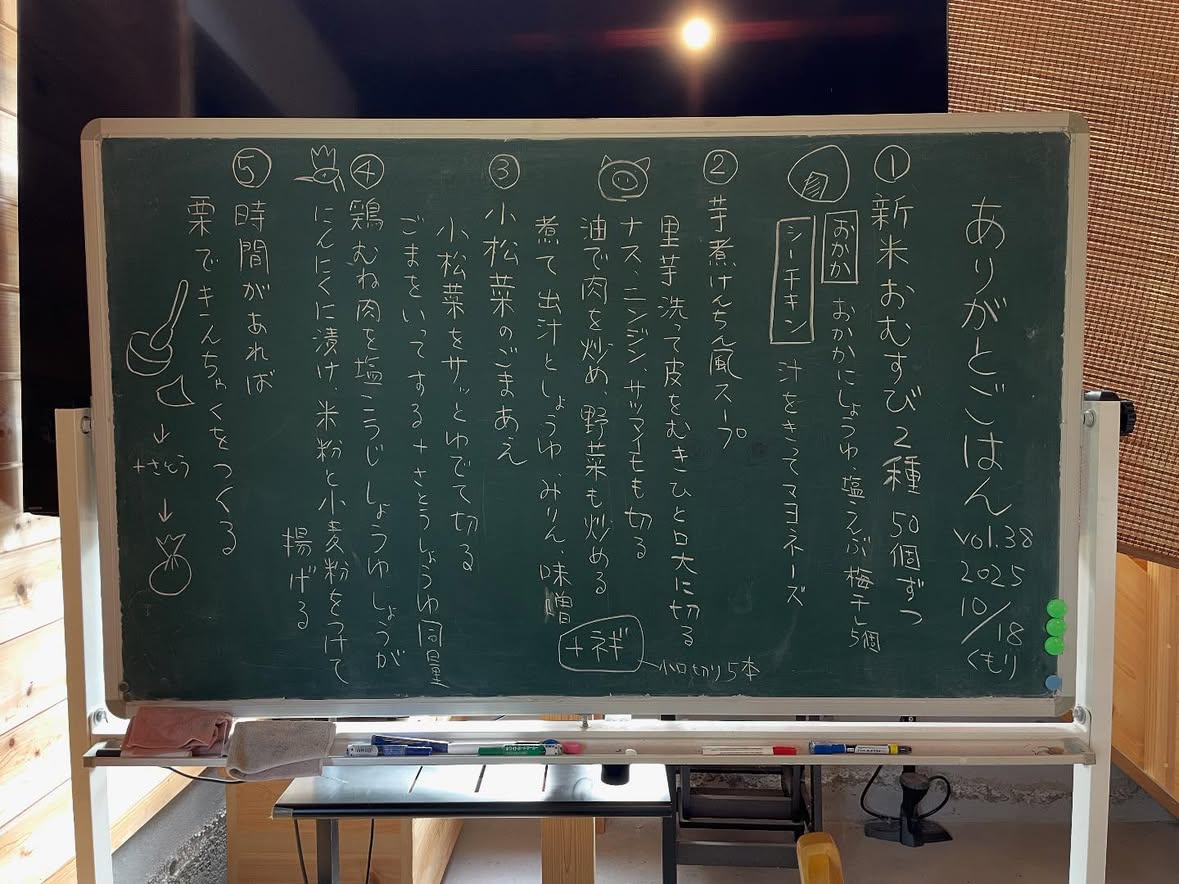 ありがとごはん
vol.38
2025
10/18
くもり
① 新米おむすび2種 50個ずつ
おかか おかかにしょうゆ・塩こぶ・梅干し5個
シーチキン 汁をきってマヨネーズ
② 芋煮けんちん風スープ
里芋洗って皮をむきひと口大に切る
ナス、ニンジン、サツマイモも切る
油で肉を炒め、野菜も炒める
煮て出汁としょうゆ、みりん、味噌
+ネギ
小口切り5本
③ 小松菜のごまあえ
小松菜をサッとゆでて切る
ごまをいってする+さとうしょうゆ同量
④ 鶏むね肉を塩こうじ しょうゆ しょうが
にんにくに漬け、米粉と小麦粉をつけて
揚げる
⑤ 時間があれば
栗できんちゃくをつくる
↓
+さとう
↓